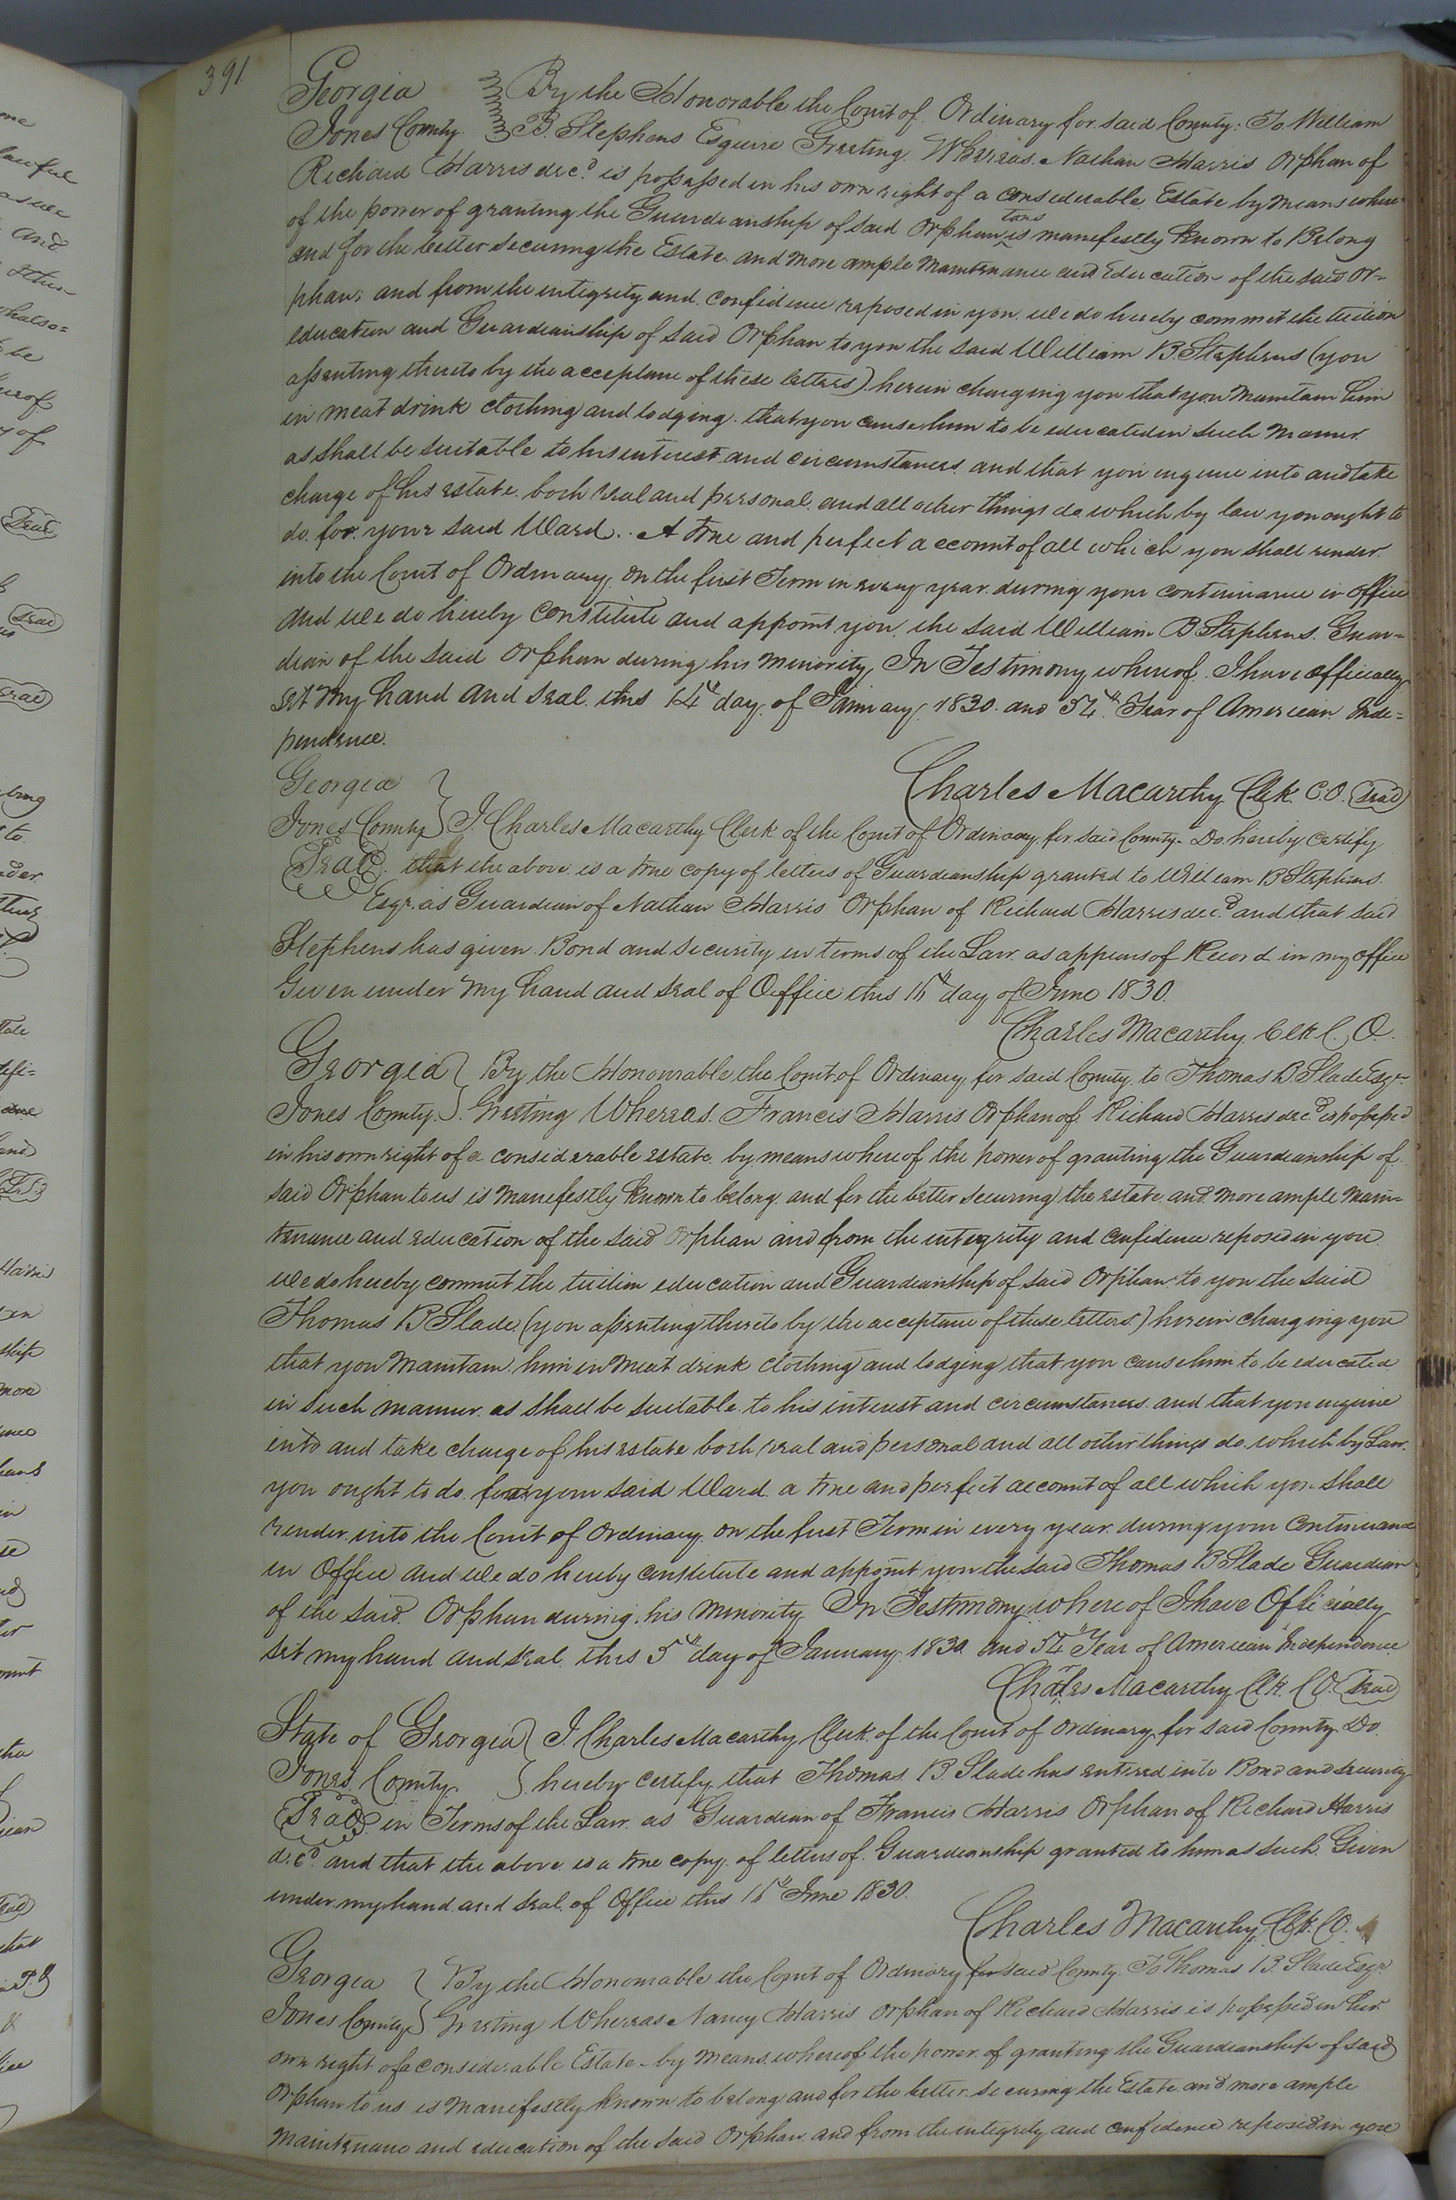 391
Georgia } By the Honorable the Court of Ordinary for said County: To William
Jones County } B Stephens Esquire Greeting. Whereas Nathan Harris Orphan of
Richard Harris decd. is possessed in his own right of a considerable Estate by means where
of the power of granting the Guardianship of said Orphan to us is manefestly Known to Belong
and for the better securing the Estate and more ample Maintenance and Education of the said Or=
phan, and from the integrity and confidence reposed in you we do hereby commit the tuition
education and Guardianship of said Orphan to you the said William B Stephens (you
assenting thereto by the acceptance of these letters) herein charging you that you Maintain him
in meat drink clothing and lodging. that you cause him to be educated in such Manner
as shall be suitable to his interest and circumstances and that you enquire into and take
charge of his estate both real and personal and all other things do which by law you ought to
do for your said Ward. A true and perfect account of all which you shall render
into the Court of Ordinary on the first Term in every year during your continuance in office
and we do hereby constitute and appoint you the said William B Stephens Guar=
dian of the said Orphan during his minority, In Testimony whereof I have officially
set my hand and seal this 14th day of January 1830. and 54th Year of American Inde=
pendence.
Charles Macarthy Clk. C.O. (Seal)
Georgia }
Jones County } I Charles Macarthy Clerk of the Court of Ordinary for said County Do hereby Certify
(Seal) that the above is a true copy of letters of Guardianship granted to William B Stephens
Esqr. as Guardian of Nathan Harris Orphan of Richard Harris decd and that said
Stephens has given Bond and security in terms of the Law as appears of Record in my office
Given under my hand and seal of Office this 15th day of June 1830.
Charles Macarthy Clk C. O.
Georgia } By the Honourable the Court of Ordinary for said County to Thomas B Slade Esqr
Jones County } Greeting Whereas Francis Harris Orphan of Richard Harris decd is possessed
in his own right of a considerable estate by means whereof the power of granting the Guardianship of
said Orphan to us is manefestly Known to belong and for the better securing the estate and more ample Main=
tenance and education of the said Orphan and from the integrity and confidence reposed in you
we do hereby commit the tuition education and Guardianship of said Orphan to you the said
Thomas B Slade (you assenting thereto by the acceptance of these letters) herein charging you
that you Maintain him in Meat drink clothing and lodging that you cause him to be educated
in such manner as shall be suitable to his interest and circumstances and that you enquire
into and take charge of his estate both real and personal and all other things do which by Law
you ought to do for your said Ward a true and perfect account of all which you shall
render into the Court of Ordinary on the first Term in every year during your Continuance
in Office and we do hereby constitute and appoint you the said Thomas B Slade Guardian
of the said Orphan during his Minority In Testimony where of I have Officially
set my hand and seal this 5th day of January 1830 and 54th Year of American Independence.
Charles Macarthy Clk. C O. (Seal)
State of Georgia } I Charles Macarthy Clerk of the Court of Ordinary for said County Do
Jones County } hereby Certify that Thomas B. Slade has entered into Bond and security
(Seal) in Terms of the Law as Guardian of Francis Harris Orphan of Richard Harris
decd. and that the above is a true copy of letters of Guardianship granted to him as such Given
under my hand and seal of Office this 15th June 1830.
Charles Macarthy Clk. C O.
Georgia } By the Honourable the Court of Ordinary for said County To Thomas B. Slade Esqr
Jones County } Greeting Whereas Nancy Harris Orphan of Richard Harris is possessed in her
own right of a considerable Estate by means whereof the power of granting the Guardianship of said
Orphan to us is manifestly known to belong and for the better securing the Estate and more ample
Maintenance and education of the said Orphan and from the integrity and confidence reposed in you